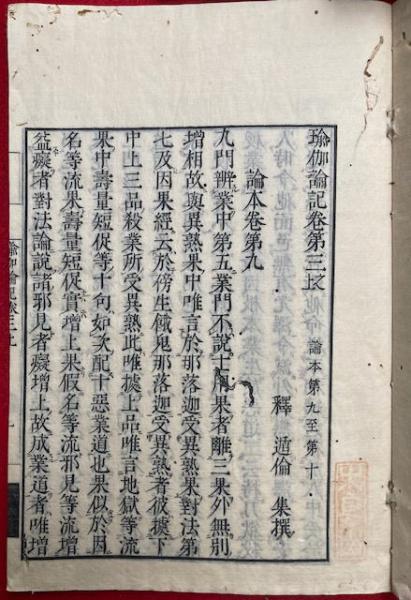 瑜伽論記卷第三上 論本第九至第十
釋 遁倫 集撰
論本卷第九
九門辨業中第五業門不說士用果者離三果外無別
增相故與異熟果中唯言於那落迦受異熟果對法第
七及因果經云於傍生餓鬼那落迦受異熟者彼據下
中上三品殺業所受異熟此唯據上品唯言地獄等流
果中壽量短促等十句如次配十惡業道也果似於因
名等流果壽量短促實增上果假名等流邪見等流增
益癡者對法論說諸邪見者癡增上故成業道者唯增
瑜伽論記卷三上